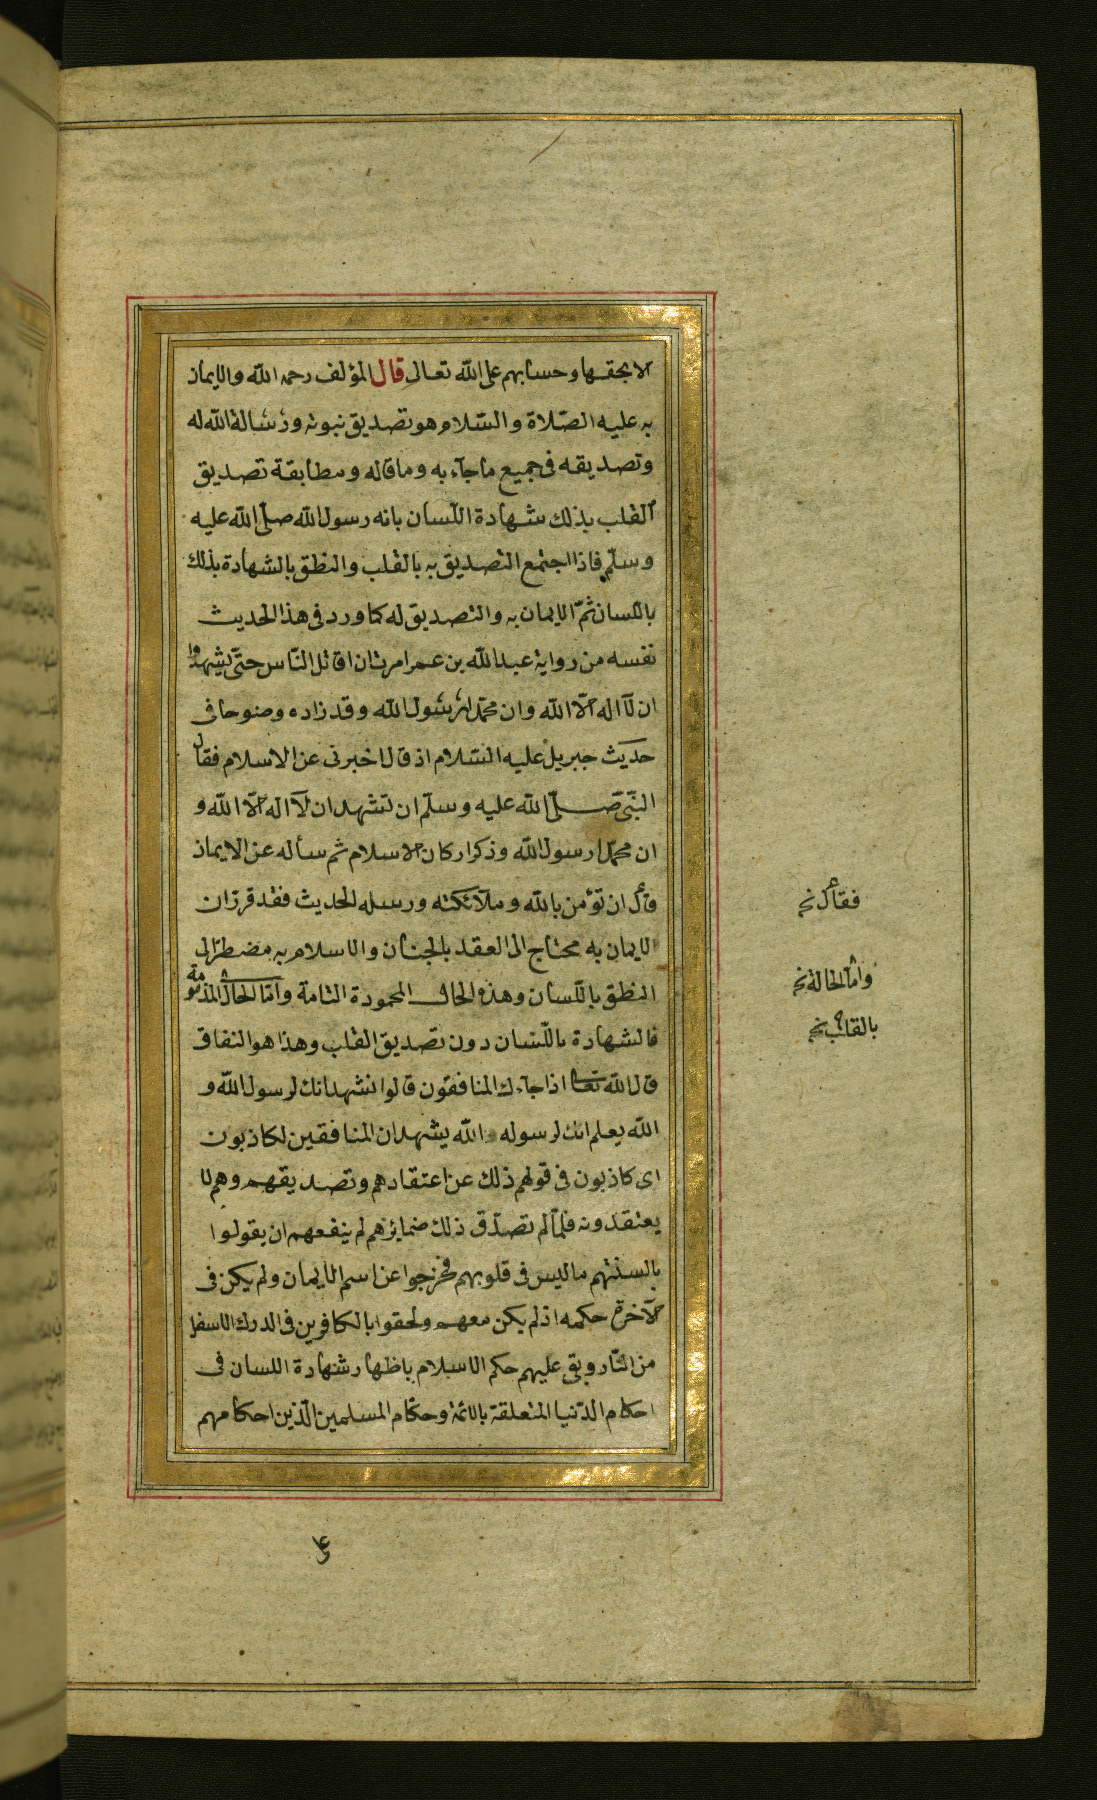 الا بحقها وحسابهم على الله تعالى قال المؤلف رحمه الله والايمان
به عليه الصّلاة والسّلام هو تصديق نبوته ورسالة الله له
وتصديقه فى جميع ما جآء به وما قاله ومطابقة تصديق
القلب بذلك شهادة اللسان بانه رسول الله صلّى الله عليه
وسلّم فاذا اجتمع التصديق به بالقلب والنطق بالشهادة بذلك
باللسان ثمّ الايمان به والتصديق له كما ورد فى هذا الحديث
نفسه من رواية عبد الله بن عمر امرت ان اقاتل النّاس حتّى يشهدوا
ان لآ اله الّا الله وان محمّدا رسول الله وقد زاده وضوحا فى
حديث جبريل عليه السّلام اذ قال اخبرنى عن الاسلام فقال
النّبىّ صلّى الله عليه وسلّم ان تشهد ان لآ اله الّا الله و
ان محمّدا رسول الله وذكر اركان الاسلام ثم سأله عن الايمان
قال ان تؤمن بالله وملآئكته ورسله الحديث فقد قرر ان
الايمان به محتاج الى العقد بالجنان والاسلام به مضطرّ الى
النطق باللّسان وهذه الحال المحمودة التامة وامّا الحال المذمومة
فالشهادة باللّسان دون تصديق القلب وهذا هو النفاق
قال الله تعالى اذا جآءك المنافقون قالوا نشهد انك لرسول الله و
الله يعلم انك لرسوله والله يشهد ان المنافقين لكاذبون
اى كاذبون فى قولهم ذلك عن اعتقادهم وتصديقهم وهم لا
يعتقدونه فلمّا لم تصدّق ذلك ضمايرهم لم ينفعهم ان يقولوا
بالسنتهم ما ليس فى قلوبهم فخرجوا عن اسم الايمان ولم يكن فى
الآخرة حكمه اذ لم يكن معهم ولحقوا بالكافرين فى الدرك الاسفل
من النّار وبقى عليهم حكم الاسلام باظهار شهادة اللسان فى
احكام الدّنيا المتعلقة بالائمّة وحكّام المسلمين الّذين احكامهم
فقال نخ
وامّا الحالة نخ
بالقلب نخ